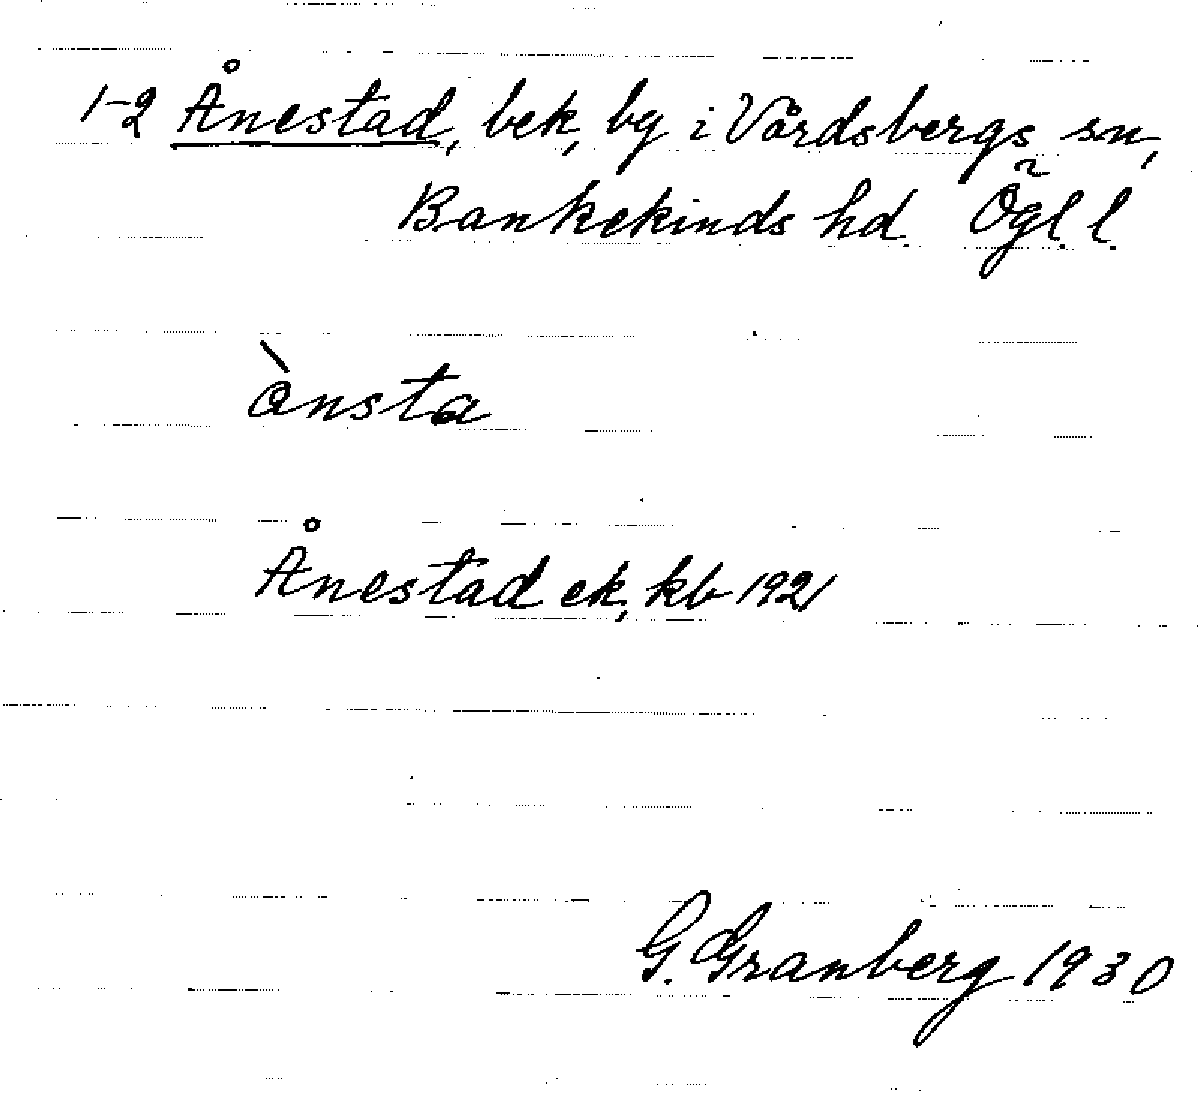 1-2 Ånestad, bek, by i Vårdsbergs sn,
Bankekinds hd. Ögl. l.
ànsta
Ånestad ek, kb 1921
G. Granberg 1930